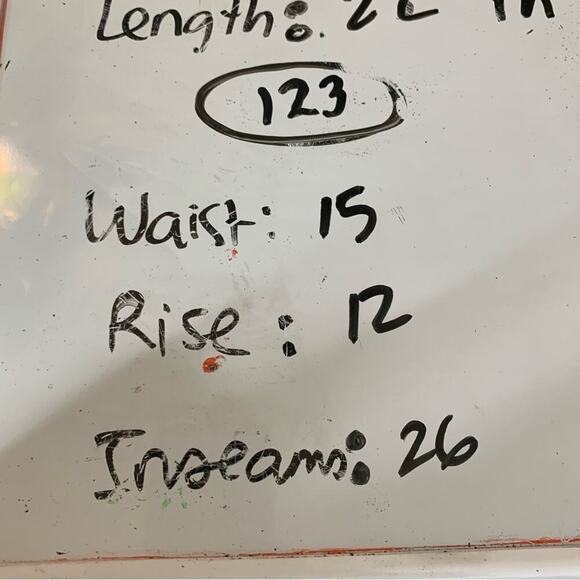 Length: 22 in
123
Waist: 15
Rise: 12
Inseam: 26